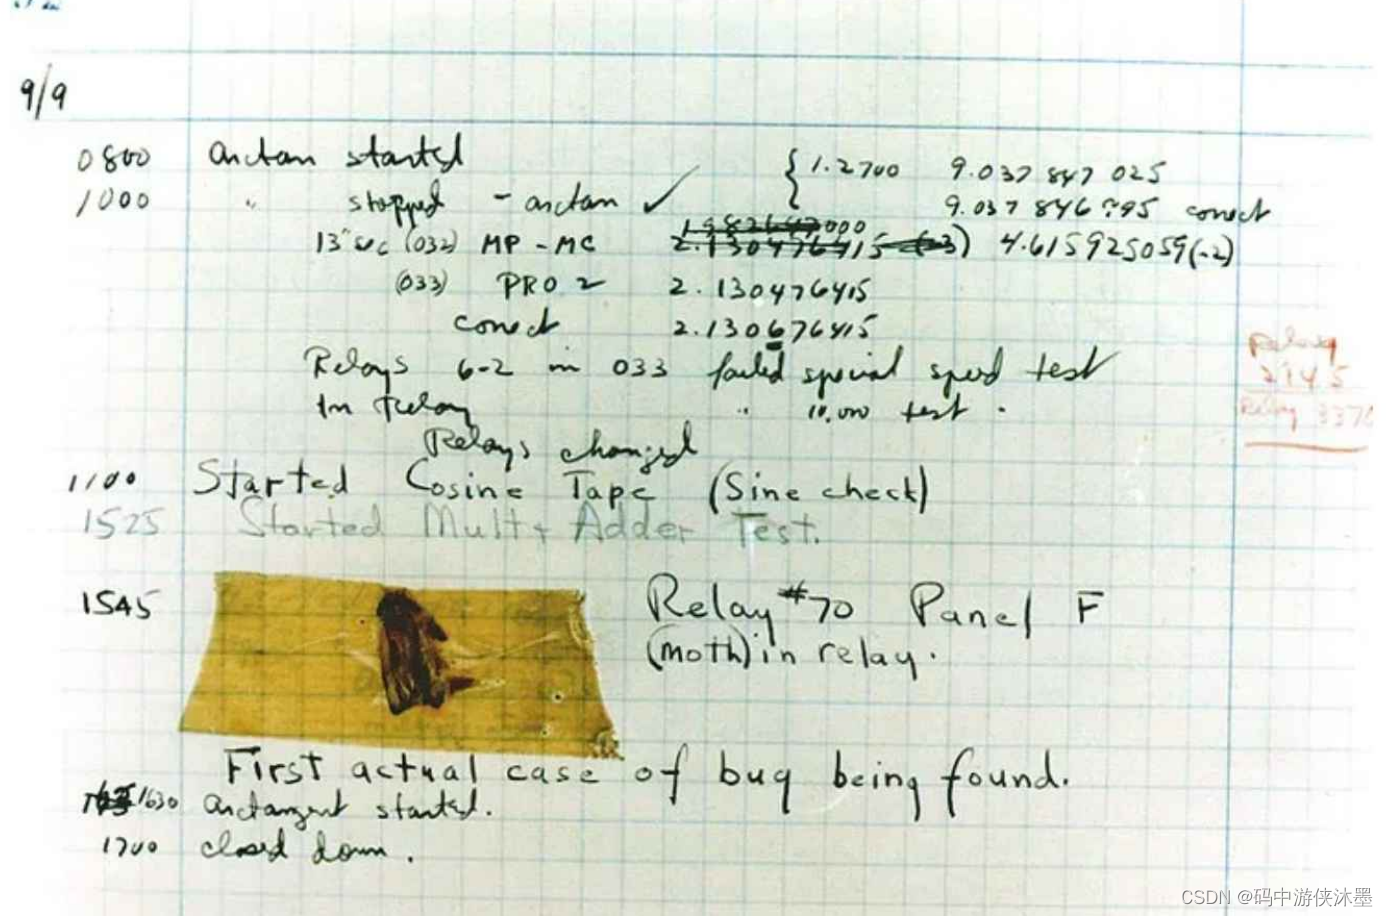 9/9
0800 arctan started { 1.2700 9.037 847 025
1000 " stopped - arctan ✓ 9.037 846 795 correct
13" sec (032) MP - MC 2.130476415 (-3) 4.615925059(-2)
(033) PRO 2 2.130476415
correct 2.130676415
Relays 6-2 in 033 failed special speed test
In Relay " 10,000 test .
Relay
2145
Relay 3370
Relays changed
1100 Started Cosine Tape (Sine check)
1525 Started Mult + Adder Test.
1545 Relay #70 Panel F
(moth) in relay.
First actual case of bug being found.
1630 arctangent started.
1700 closed down.
CSDN @码中游侠沐墨